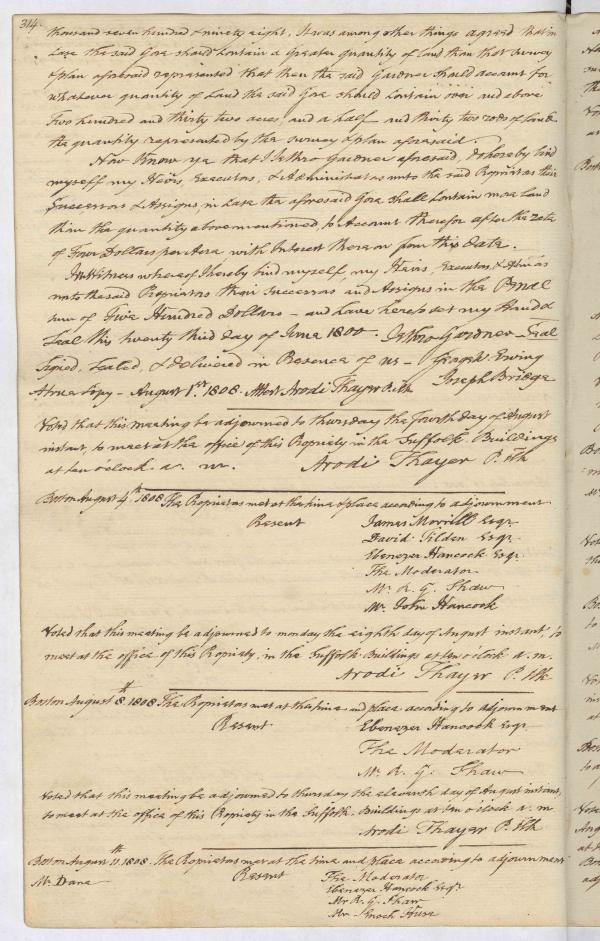 314.
thousand seven hundred & ninety eight, It was among other things agreed that in
case the said Gore should Contain a Greater quantity of land than that survey
& plan aforesaid represented that then the said Gardner should account for
whatever quantity of Land the said Gore should Contain over and above
Two hundred and thirty two acres and a half and thirty two rods of Land
the quantity represented by the survey & plan aforesaid.
Now Know ye that I Jethro Gardner aforesaid, do hereby bind
myself my Heirs, Executors, & Administrators unto the said Proprietors their
Successors & Assigns, in Case the aforesaid Gore shall Contain more Land
than the quantity above mentioned, to Account therefor after the rate
of Four Dollars per Acre, with Interest thereon from this date.
In Witness whereof I hereby bind myself, my Heirs, Executors, & Admors
unto the said Proprietors their Successors and Assigns in the Penal
sum of Five Hundred Dollars - and have hereto set my Hand &
Seal this twenty third day of June 1800. Jethro Gardner - Seal
Signed, Sealed, & delivered in Presence of us - Ewing
A true Copy - August 1st. 1808. Attest Arodi Thayer P. Clk Joseph Bridge
Voted that this meeting be adjourned to thursday the Fourth day of August
instant, to meet at the office of this Propriety in the Suffolk Buildings
at ten o'clock a. m. Arodi Thayer P. Clk
Boston August 4th. 1808 The Proprietors met at the time & place according to adjournment
Present James Morrill Esqr
David Tilden Esqr.
Ebenezer Hancock Esqr.
The Moderator
Mr. R. G. Shaw
Mr. John Hancock
Voted that this meeting be adjourned to monday the eighth day of August instant, to
meet at the office of this Propriety, in the Suffolk Buildings at ten o'clock a. m.
Arodi Thayer P. Clk
Boston August 8th. 1808 The Proprietors met at the time and place according to adjournment
Present Ebenezer Hancock Esqr.
The Moderator
Mr. R. G. Shaw
Voted that this meeting be adjourned to thursday the eleventh day of August instant,
to meet at the office of this Propriety in the Suffolk Buildings at ten o'clock a. m
Arodi Thayer P. Clk
Boston August 11th. 1808. The Proprietors met at the time and place according to adjournment
Mr. Dana Present The Moderator
Ebenezer Hancock Esqr.
Mr R. G. Shaw
Mr. Enoch Huse